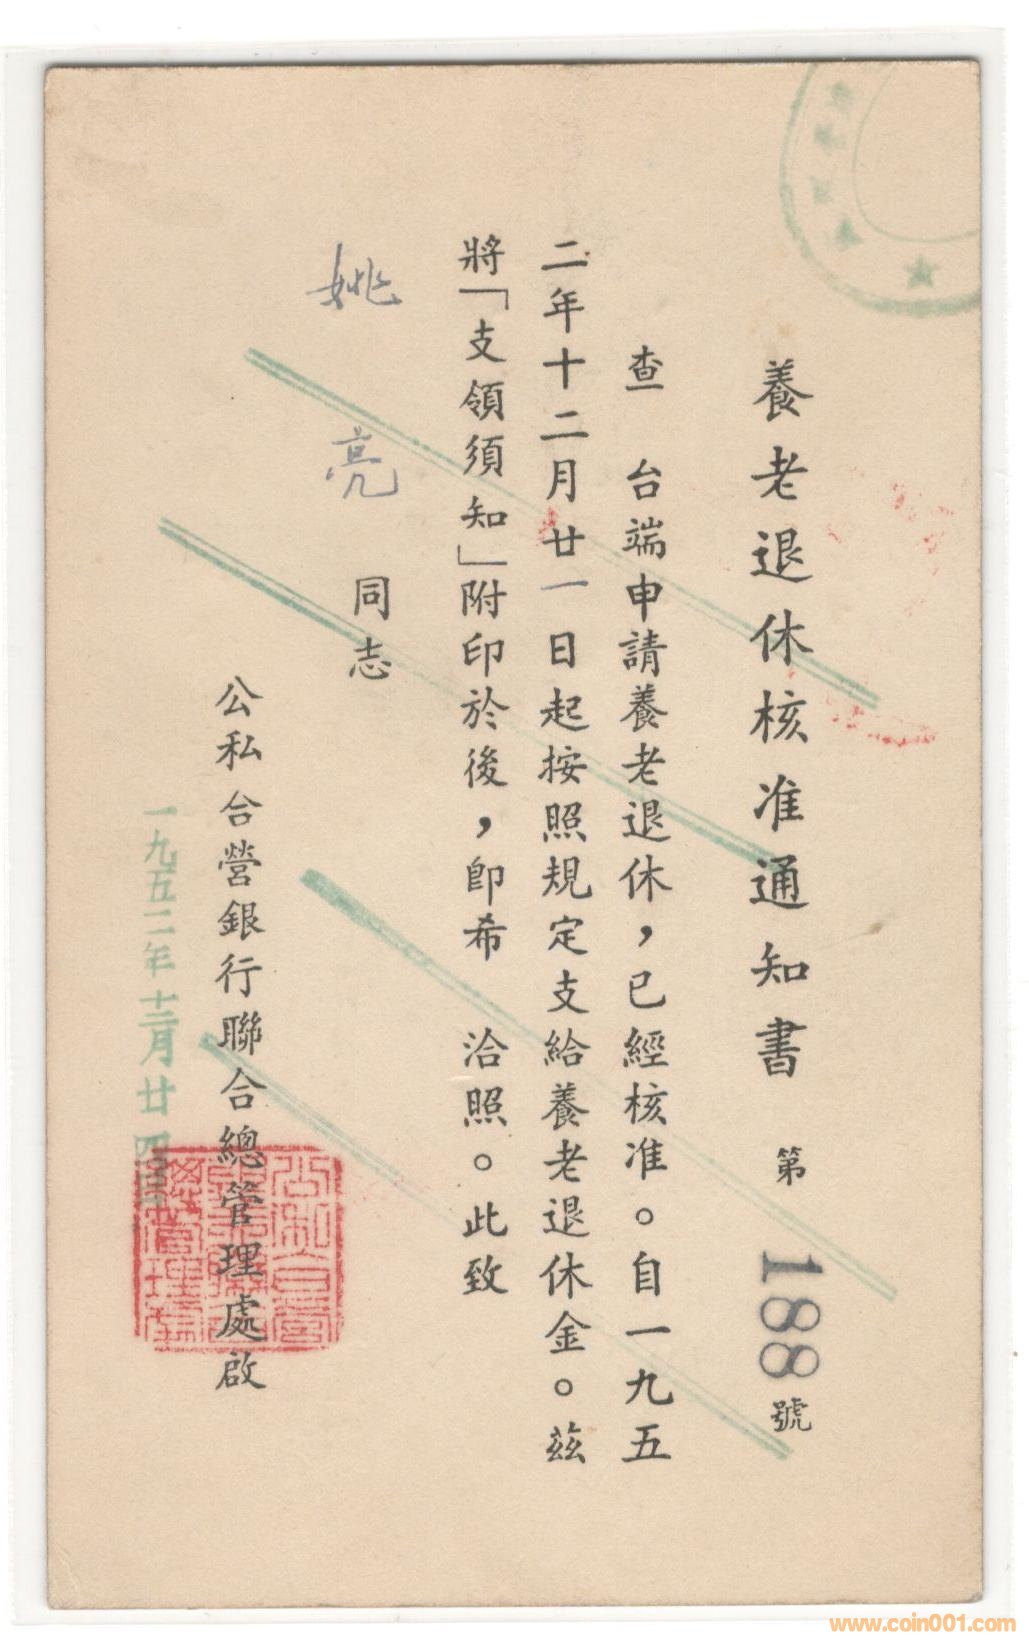 養老退休核准通知書 第188號
查 台端申請養老退休，已經核准。自一九五
二年十二月廿一日起按照規定支給養老退休金。茲
將「支領須知」附印於後，卽希 洽照。此致
姚亮 同志
公私合營銀行聯合總管理處啟
一九五二年十二月廿四日
www.coin001.com